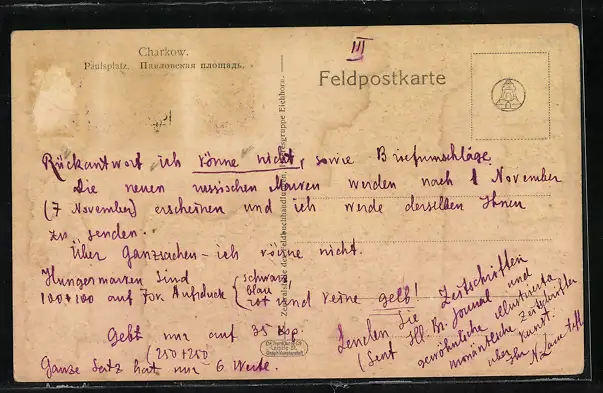 Charkow.
Paulsplatz. Павловская площадь.
III
Feldpostkarte
Zentralstelle der Feldbuchhandlungen, Heeresgruppe Eichhorn.
Rückantwort ich könne nicht, sowie Briefumschläge
Die neuen russischen Marken werden nach 1 November
(7 November) erscheinen und ich werde derselben Ihnen
zu senden.
Über Ganzsachen - ich könne nicht.
Hungermarken sind
100+100 auf 70k. Aufdruck
schwarz
blau
rot
und keine gelb!
Gebt nur auf 35 kop.
(250+250)
Ganze Satz hat nur 6 Werte.
Senden Sie Zeitschriften
(Sent. Ill. Br. Journal und
gewöhnliche illustrierte
monatliche Zeitschriften
über Kunst.
Ihr